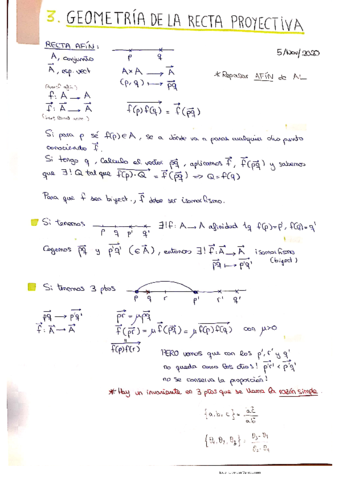 3. GEOMETRÍA DE LA RECTA PROYECTIVA
5/Nov/2020
RECTA AFÍN:
p q
A, conjunto
A⃗, esp. vect
A×A → A⃗
(p, q) ↦ p⃗q⃗
* Repasar AFÍN de
f: A → A
f⃗: A⃗ → A⃗
f(p)f(q) = f⃗(pq)
Si para p sé f(p)∈A, sé a dónde va a parar cualquier otro punto
conociendo f⃗.
Si tengo q, calculo el vector pq, aplicamos f⃗, f⃗(pq) y sabemos
que ∃! Q tal que f(p)Q = f⃗(pq) ⇒ Q = f(q)
Para que f sea biyect., f⃗ debe ser isomorfismo.
Si tenemos
p q p' q'
∃! f: A → A afinidad tq f(p)=p', f(q)=q'
Cogemos pq y p'q' (∈A⃗), entonces ∃! f⃗: A⃗ → A⃗ isomorfismo
pq ↦ p'q' (biyect)
Si tenemos 3 ptos
p q r p' r' q'
pq → p'q'
f⃗: A⃗ → A⃗
pr = μpq
f⃗(pr) = μf⃗(pq) = μf(p)f(q) con μ>0
f(p)f(r)
PERO vemos que con los p', r' y q'
no queda como los dios! p'r' < p'q'
no se conserva la proporción!
* Hay un invariante en 3 ptos que se llama la razón simple
{a, b, c} =